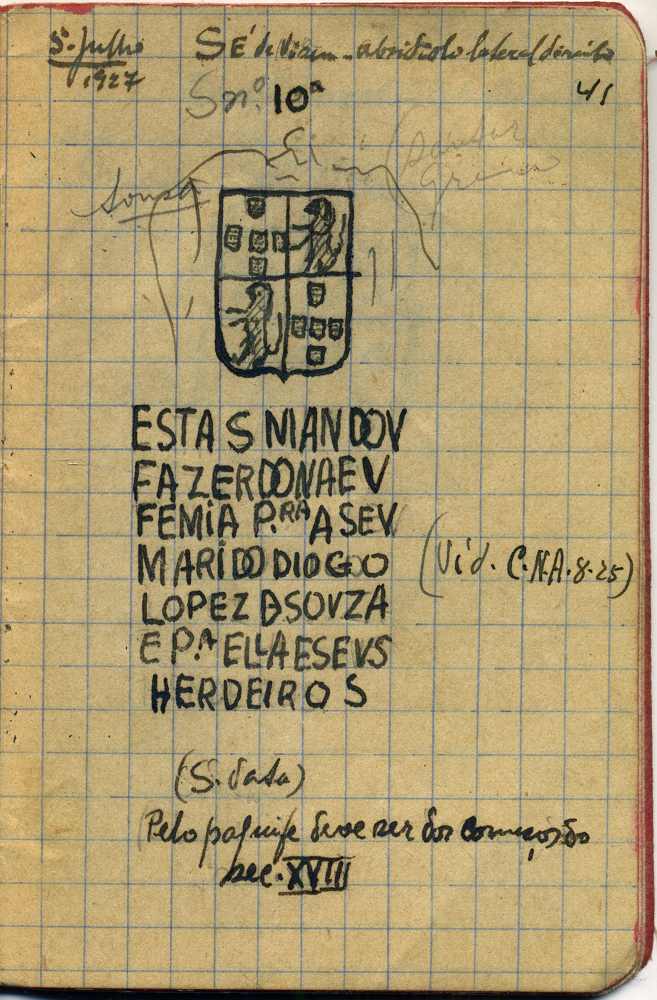 5. Julho
1927
SÉ de Viseu - absidiolo lateral direito
41
S nº. 10ª
Sousa
ESTA S MANDOV
FAZER DONA EV
FEMIA P.RA A SEV
MARIDO DIOGO
LOPEZ DSOVZA
E P.A ELLA E SEVS
HERDEIROS
(Vid. C.N.A. 8-25)
(S. data)
Pelo paquife deve ser dos começos do
sec. XVIII